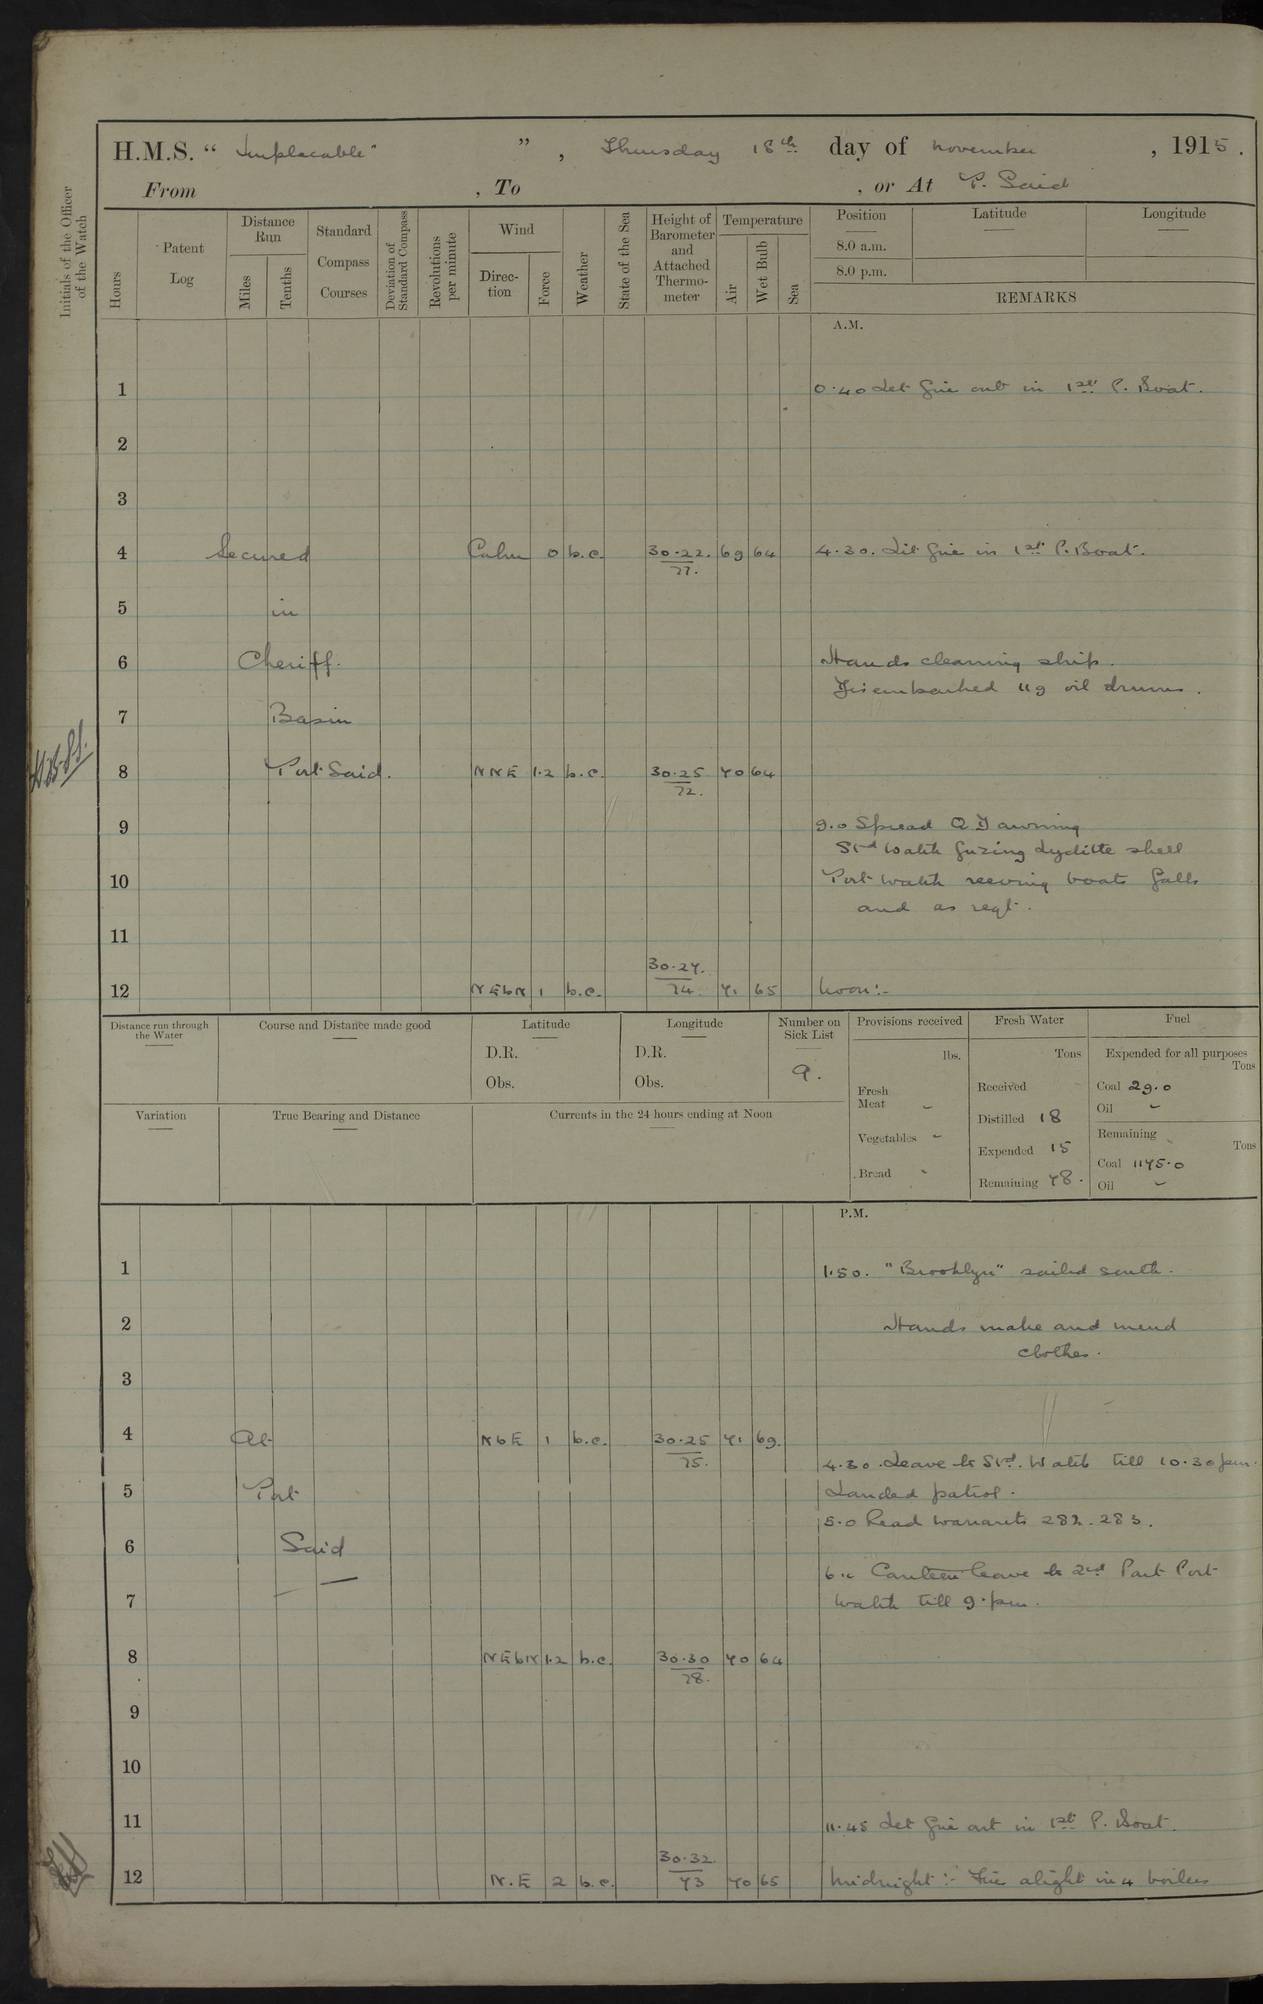 H.M.S. “ Implacable” ” , Thursday 18th day of November , 1915 .
From , To , or At P. Said
Initials of the Officer of the Watch
Hours
Patent Log
Distance Run
Miles
Tenths
Standard Compass Courses
Deviation of Standard Compass
Revolutions per minute
Wind
Direc-tion
Force
Weather
State of the Sea
Height of Barometer and Attached Thermo-meter
Temperature
Air
Wet Bulb
Sea
Position
Latitude
Longitude
8.0 a.m.
8.0 p.m.
REMARKS
A.M.
1 0.40 Let fire out in 1st P. Boat.
2
3
4 Secured Calm 0 b.c. 30.22. 69 64 4.30. Lit fire in 1st P. Boat.
5 in
6 Cheriff. Hands cleaning ship.
Disembarked 119 oil drums.
7 Basin
8 Port Said. NNE 1.2 b.c. 30.25 70 64
72.
9 9.0 Spread QD awning
Std Watch fuzing Lyddite shell
10 Port watch reeving boats falls
and as reqt.
11
30.27.
12 NEbN 1 b.c. 74. 71 65 Noon:-
Distance run through the Water
Course and Distance made good
Latitude
D.R.
Obs.
Longitude
D.R.
Obs.
Number on Sick List
9.
Provisions received
lbs.
Fresh Meat -
Vegetables -
Bread -
Fresh Water
Tons
Received
Distilled 18
Expended 15
Remaining 78.
Fuel
Expended for all purposes
Tons
Coal 29.0
Oil -
Remaining
Tons
Coal 1175.0
Oil -
Variation
True Bearing and Distance
Currents in the 24 hours ending at Noon
P.M.
1 1.50. "Brooklyn" sailed south.
2 Hands make and mend
clothes.
3
4 At NbE 1 b.c. 30.25 71 69.
75.
4.30. Leave to Std. Watch till 10.30 pm.
5 Port Landed patrol.
5.0 Read warrants 282. 283.
6 Said
6.0 Canteen leave to 2nd Part Port
7 Watch till 9.pm.
8 NEbN 1.2 b.c. 30.30 70 64
78.
9
10
11 11.45 Let fire out in 1st P. Boat.
30.32.
12 N.E 2 b.c. 73 70 65 Midnight:- Fires alight in 4 boilers